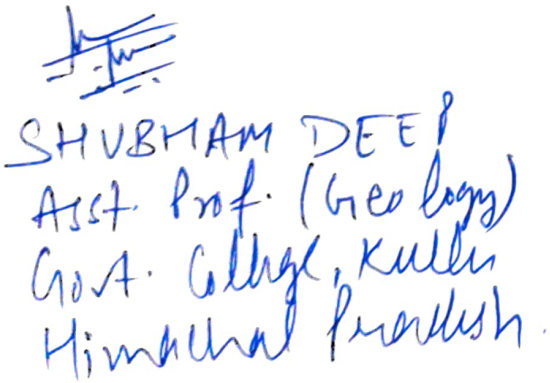 SHUBHAM DEEP
Asst. Prof. (Geology)
Govt. College, Kullu
Himachal Pradesh.